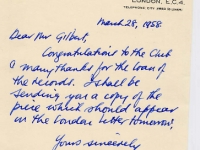 LONDON, E.C.4.
March 28, 1958.
Dear Mr Gilbert,
Congratulations to the Club
& many thanks for the loan of
the records. I shall be
sending you a copy of the
piece which should appear
in the London Letter tomorrow.
Yours sincerely